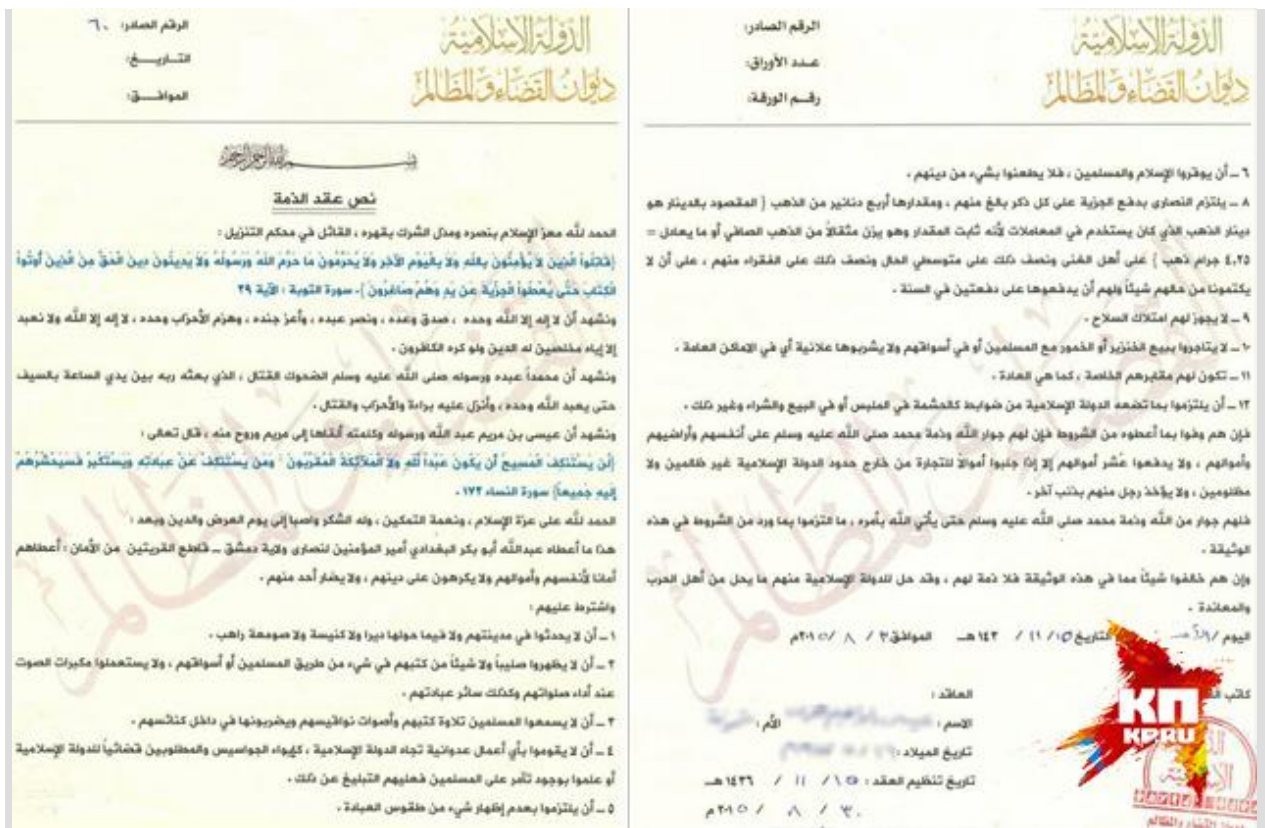 الدولة الإسلامية
ديوان القضاء والمظالم
الرقم الصادر: ٦٠
التاريـــخ:
الموافـــق:
بسم الله الرحمن الرحيم
نص عقد الذمة
الحمد لله معز الإسلام بنصره ومذل الشرك بقهره ، القائل في محكم التنزيل :
{قَاتِلُوا الَّذِينَ لَا يُؤْمِنُونَ بِاللَّهِ وَلَا بِالْيَوْمِ الْآخِرِ وَلَا يُحَرِّمُونَ مَا حَرَّمَ اللَّهُ وَرَسُولُهُ وَلَا يَدِينُونَ دِينَ الْحَقِّ مِنَ الَّذِينَ أُوتُوا
الْكِتَابَ حَتَّى يُعْطُوا الْجِزْيَةَ عَنْ يَدٍ وَهُمْ صَاغِرُونَ }- سورة التوبة : الآية ٢٩
ونشهد أن لا إله إلا الله وحده ، صدق وعده ، ونصر عبده ، وأعز جنده ، وهزم الأحزاب وحده ، لا إله إلا الله ولا نعبد
إلا إياه مخلصين له الدين ولو كره الكافرون -
ونشهد أن محمداً عبده ورسوله صلى الله عليه وسلم الضحوك القتال ، الذي بعثه ربه بين يدي الساعة بالسيف
حتى يعبد الله وحده ، وأنزل عليه براءة والأحزاب والقتال -
ونشهد أن عيسى بن مريم عبد الله ورسوله وكلمته ألقاها إلى مريم وروح منه ، قال تعالى :
{لَنْ يَسْتَنْكِفَ الْمَسِيحُ أَنْ يَكُونَ عَبْداً لِلَّهِ وَلَا الْمَلَائِكَةُ الْمُقَرَّبُونَ وَمَنْ يَسْتَنْكِفْ عَنْ عِبَادَتِهِ وَيَسْتَكْبِرْ فَسَيَحْشُرُهُمْ
إِلَيْهِ جَمِيعاً} سورة النساء ١٧٢ -
الحمد لله على عزة الإسلام ، ونعمة التمكين ، وله الشكر واصبا إلى يوم العرض والدين وبعد :
هذا ما أعطاه عبدالله أبو بكر البغدادي أمير المؤمنين لنصارى ولاية دمشق ــ قاطع القريتين من الأمان : أعطاهم
أمانا لأنفسهم وأموالهم ولا يكرهون على دينهم ، ولا يضار أحد منهم -
واشترط عليهم :
١ ــ أن لا يحدثوا في مدينتهم ولا فيما حولها ديرا ولا كنيسة ولا صومعة راهب -
٢ ــ أن لا يظهروا صليباً ولا شيئاً من كتبهم في شيء من طريق المسلمين أو أسواقهم ، ولا يستعملوا مكبرات الصوت
عند أداء صلواتهم وكذلك سائر عبادتهم -
٣ ــ أن لا يسمعوا المسلمين تلاوة كتبهم وأصوات نواقيسهم ويضربونها في داخل كنائسهم -
٤ ــ أن لا يقوموا بأي أعمال عدوانية تجاه الدولة الإسلامية ، كإيواء الجواسيس والمطلوبين قضائياً للدولة الإسلامية
أو علموا بوجود تآمر على المسلمين فعليهم التبليغ عن ذلك -
٥ ــ أن يلتزموا بعدم إظهار شيء من طقوس العبادة -
الدولة الإسلامية
ديوان القضاء والمظالم
الرقم الصادر:
عـدد الأوراق:
رقـم الورقة:
٦ ــ أن يوقروا الإسلام والمسلمين ، فلا يطعنوا بشيء من دينهم -
٨ ــ يلتزم النصارى بدفع الجزية على كل ذكر بالغ منهم ، ومقدارها أربع دنانير من الذهب ( المقصود بالدينار هو
دينار الذهب الذي كان يستخدم في المعاملات لأنه ثابت المقدار وهو يزن مثقالاً من الذهب الصافي أو ما يعادل =
٤,٢٥ جرام ذهب ) على أهل الغنى ونصف ذلك على متوسطي الحال ونصف ذلك على الفقراء منهم ، على أن لا
يكتمونا من حالهم شيئاً ولهم أن يدفعوها على دفعتين في السنة -
٩ ــ لا يجوز لهم امتلاك السلاح -
١٠ ــ لا يتاجروا ببيع الخنزير أو الخمور مع المسلمين أو في أسواقهم ولا يشربوها علانية أي في الاماكن العامة -
١١ ــ تكون لهم مقابرهم الخاصة ، كما هي العادة -
١٢ ــ أن يلتزموا بما تضعه الدولة الإسلامية من ضوابط كالحشمة في الملبس أو في البيع والشراء وغير ذلك -
فإن هم وفوا بما أعطوه من الشروط فإن لهم جوار الله وذمة محمد صلى الله عليه وسلم على أنفسهم وأراضيهم
وأموالهم ، ولا يدفعوا عُشر أموالهم إلا إذا جلبوا أموالاً للتجارة من خارج حدود الدولة الإسلامية غير ظالمين ولا
مظلومين ، ولا يؤخذ رجل منهم بذنب آخر -
فلهم جوار من الله وذمة محمد صلى الله عليه وسلم حتى يأتي الله بأمره ، ما التزموا بما ورد من الشروط في هذه
الوثيقة -
وإن هم خالفوا شيئاً مما في هذه الوثيقة فلا ذمة لهم ، وقد حل للدولة الإسلامية منهم ما يحل من أهل الحرب
والمعاندة -
اليوم / التاريخ ١٥ / ١١ / ١٤٣ هـ الموافق ٣٠ / ٨ / ٢٠١٥م
كاتب العاقد :
الاسم : الأم :
تاريخ الميلاد :
تاريخ تنظيم العقد : ١٥ / ١١ / ١٤٣٦ هـ
٣٠ / ٨ / ٢٠١٥م
КП
KP.RU